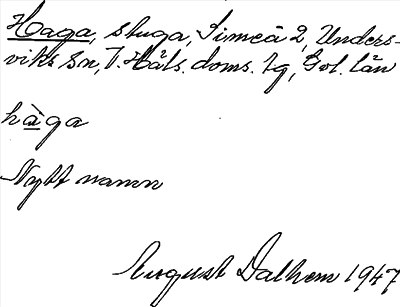 Haga, stuga, Simeå 2, Unders-
viks sn, V. Häls. doms. tg, Gvl. län
hàga
Nytt namn
August Dalhem 1947